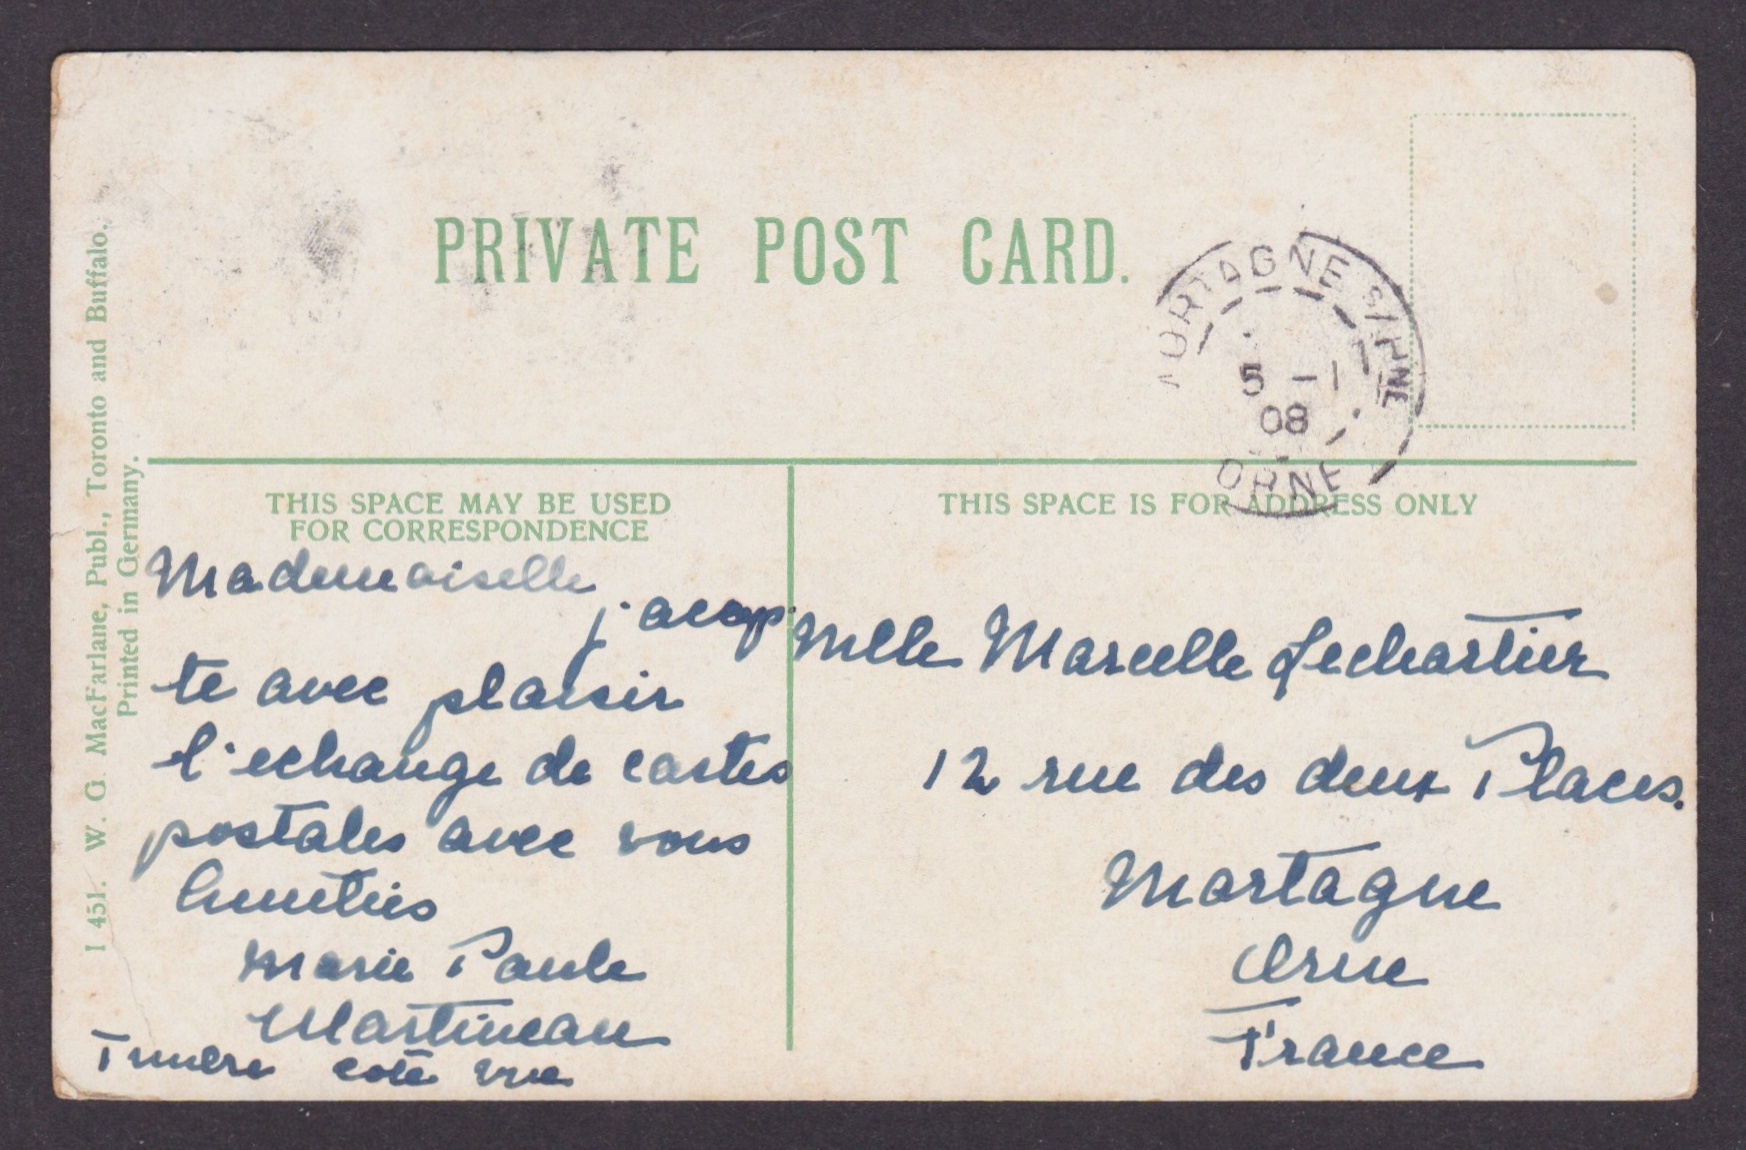 PRIVATE POST CARD.
MORTAGNE S/HNE
5 -1
08
ORNE
I 451. W. G. MacFarlane, Publ., Toronto and Buffalo.
Printed in Germany.
THIS SPACE MAY BE USED
FOR CORRESPONDENCE
THIS SPACE IS FOR ADDRESS ONLY
Mademoiselle
j'accep
te avec plaisir
l'echange de cartes
postales avec vous
Amitiés
Marie Paule
Martineau
Timbre coté vue
Melle Marcelle Lechartier
12 rue des deux Places.
Mortagne
Orne
France